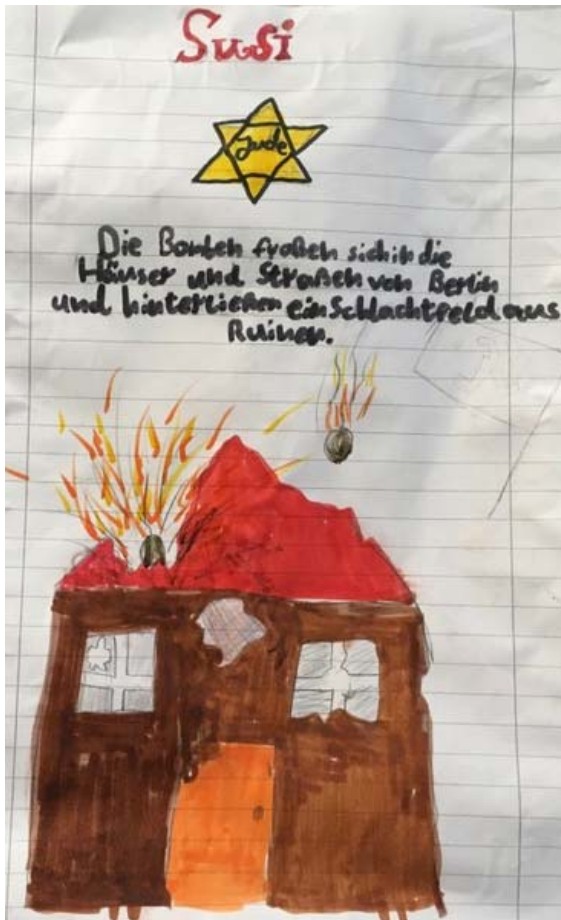 Susi
Jude
Die Bomben fraßen sich in die
Häuser und Straßen von Berlin
und hinterließen ein Schlachtfeld aus
Ruinen.